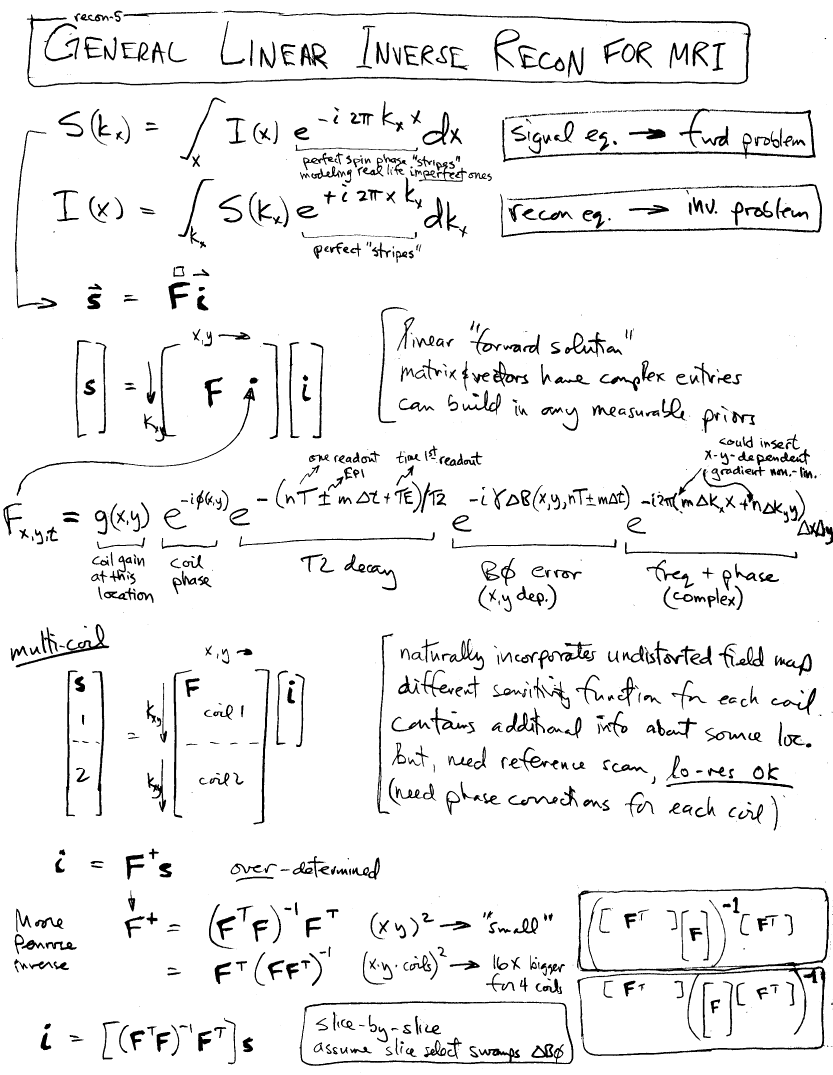 recon-5
GENERAL LINEAR INVERSE RECON FOR MRI
S(kₓ) = ∫ₓ I(x) e^{-i 2π kₓ x} dx
perfect spin phase "stripes"
modeling real life imperfect ones
signal eq. → fwd problem
I(x) = ∫_{kₓ} S(kₓ) e^{+i 2π x kₓ} dkₓ
perfect "stripes"
recon eq. → inv. problem
s⃗ = F i⃗
x,y →
[s] = ↓ k_{xy} [F] [i]
linear "forward solution"
matrix & vectors have complex entries
can build in any measurable priors
one readout
EPI
time 1st readout
could insert
x-y-dependent
gradient non-lin.
F_{x,y,t} = g(x,y) e^{-iφ(x,y)} e^{-(nT ± mΔt + TE)/T2} e^{-iγΔB(x,y,nT±mΔt)} e^{-i2π(mΔkₓx + nΔk_y y)} ΔxΔy
coil gain
at this
location
coil
phase
T2 decay
BØ error
(x,y dep.)
freq + phase
(complex)
multi-coil
x,y →
[s 1 2] = ↓ k_{xy} ↓ k_{xy} [F coil 1 coil 2] [i]
naturally incorporates undistorted field map
different sensitivity function for each coil
contains additional info about source loc.
but, need reference scan, lo-res OK
(need phase corrections for each coil)
i = F⁺s over-determined
Moore
Penrose
inverse
F⁺ = (FᵀF)⁻¹Fᵀ (xy)² → "small"
= Fᵀ(FFᵀ)⁻¹ (x·y·coils)² → 16x bigger
for 4 coils
([Fᵀ][F])⁻¹[Fᵀ]
[Fᵀ]([F][Fᵀ])⁻¹
i = [(FᵀF)⁻¹Fᵀ]s
slice-by-slice
assume slice select swamps ΔBØ